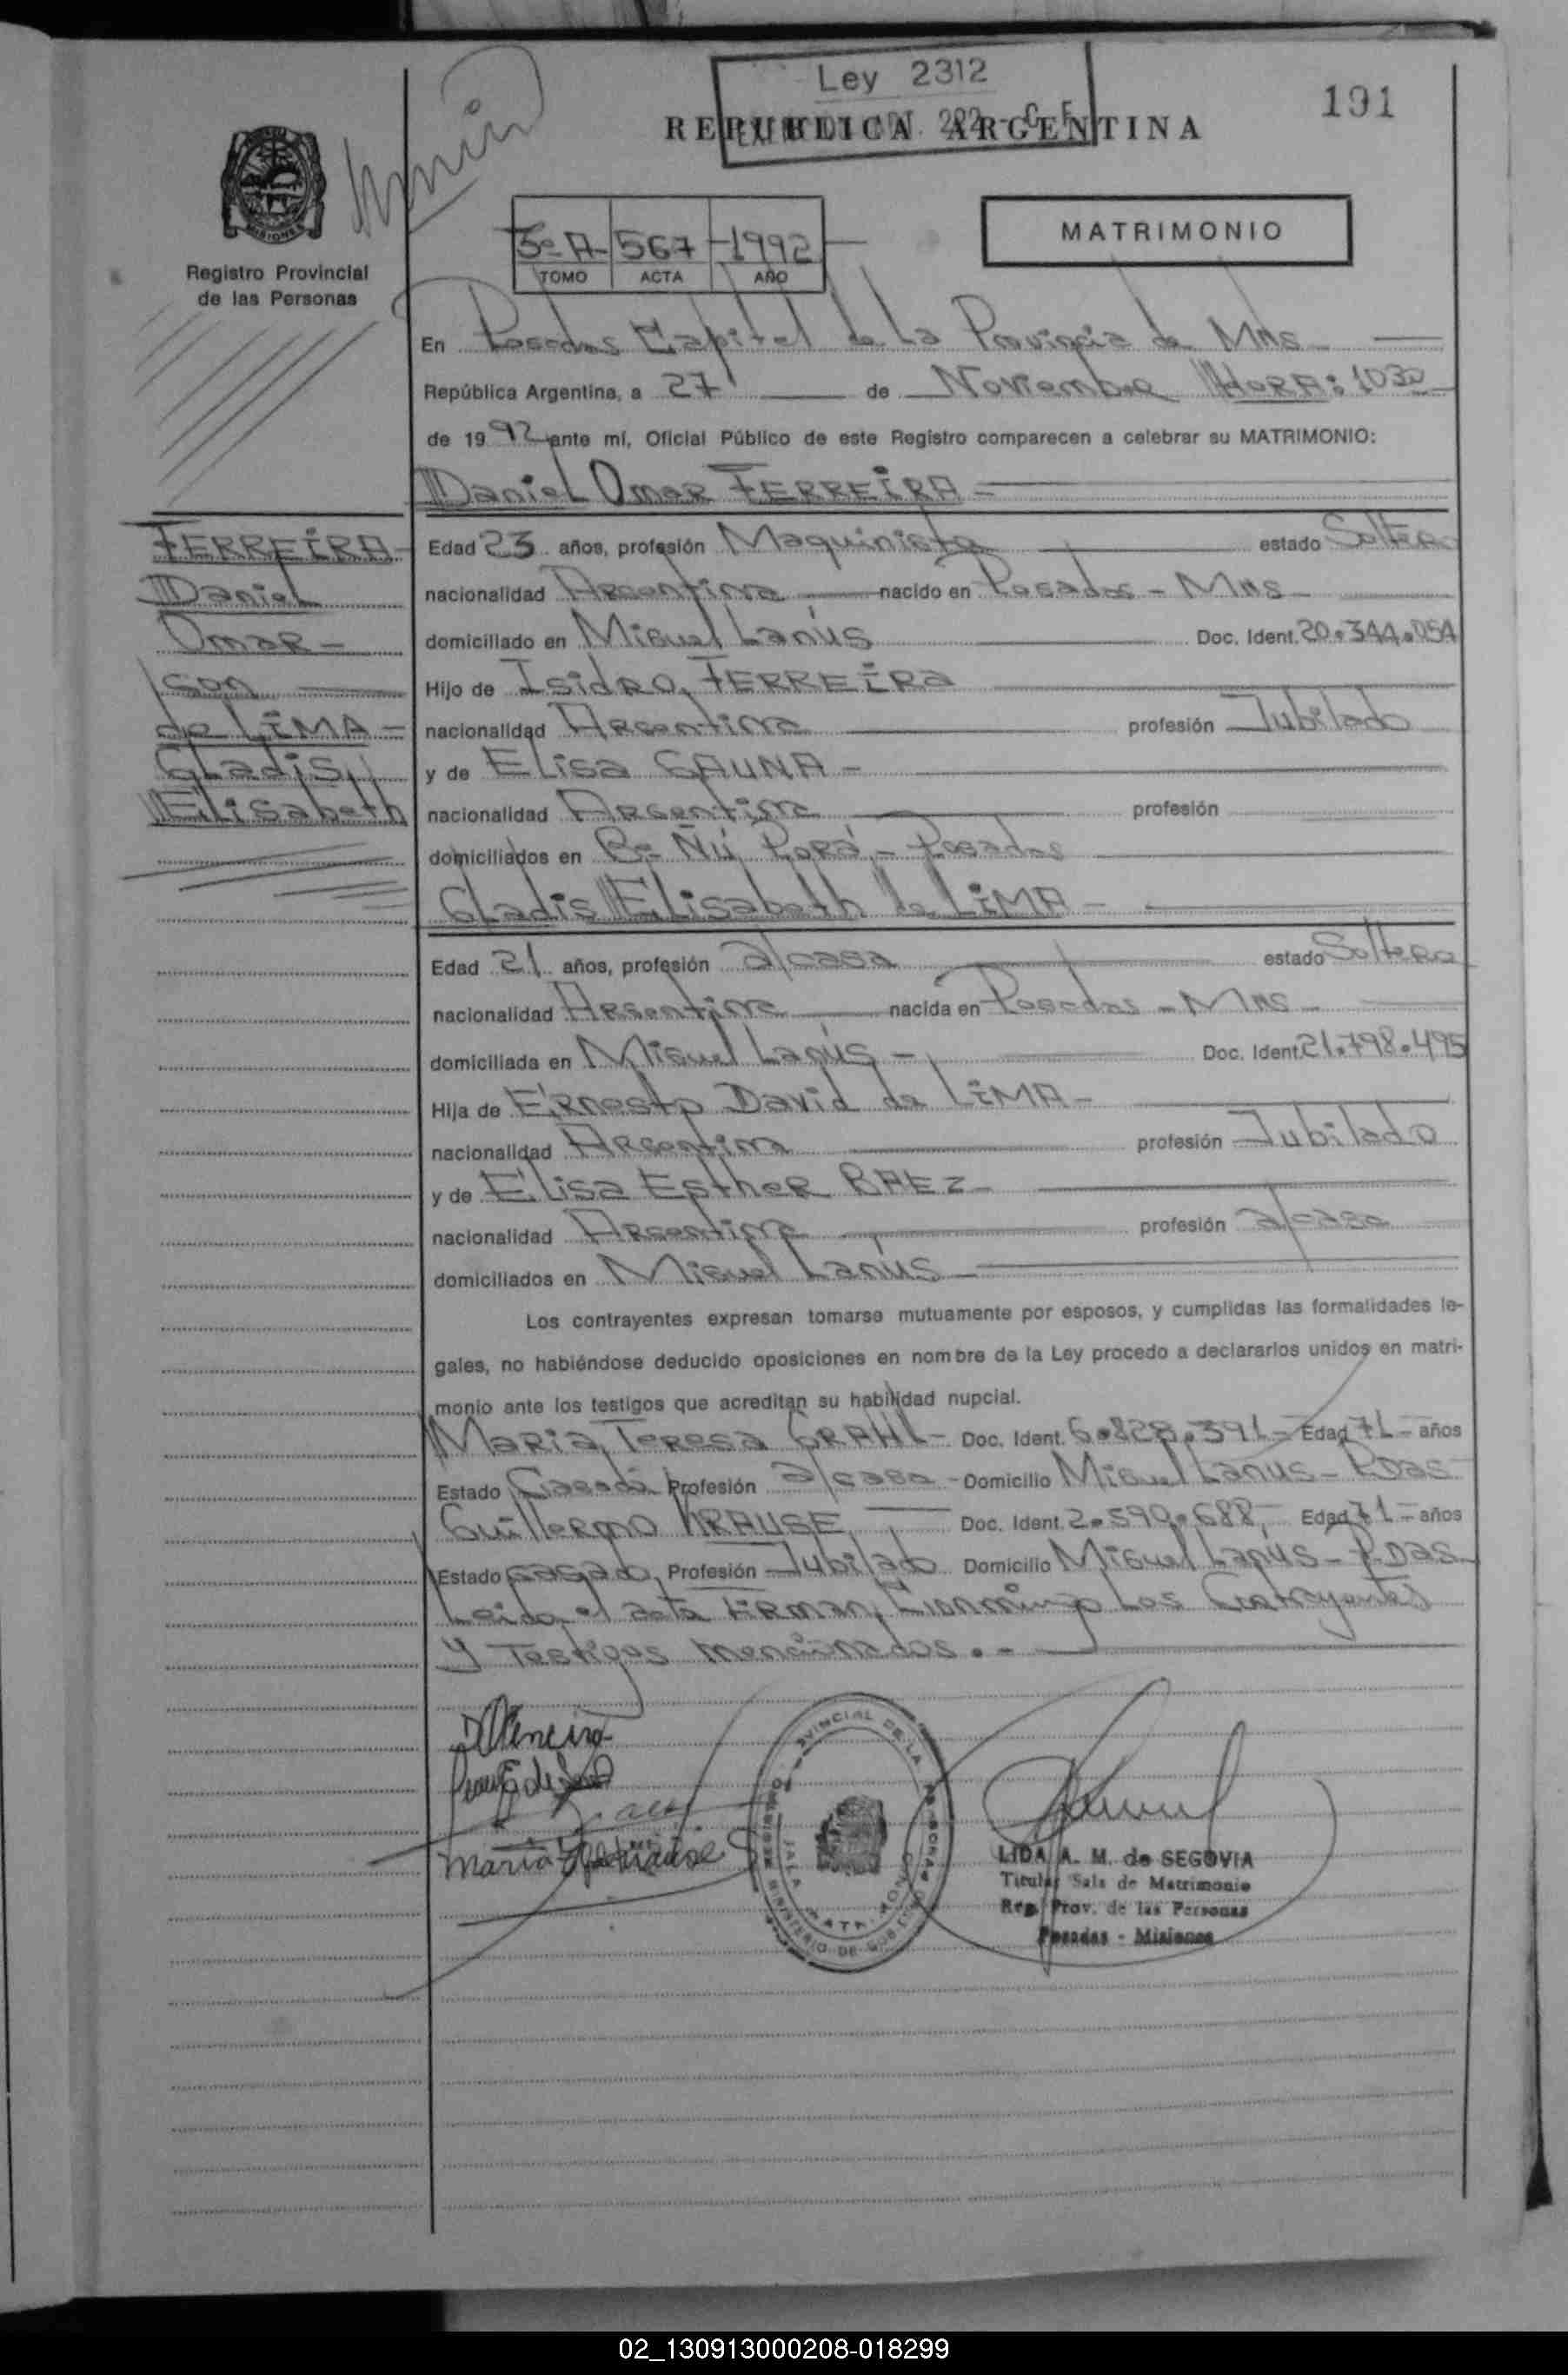 Ley 2312
191
REPUBLICA ARGENTINA
MISIONES
Registro Provincial
de las Personas
3º A - 567 - 1992
TOMO ACTA AÑO
MATRIMONIO
En Posadas Capital de la Provincia de Mnes
República Argentina, a 27 de Noviembre HORA: 1030
de 1992 ante mí, Oficial Público de este Registro comparecen a celebrar su MATRIMONIO:
Daniel Omar FERREIRA -
FERREIRA -
Daniel
Omar -
con
de LIMA -
Gladis
Elisabeth
Edad 23 años, profesión Maquinista estado Soltero
nacionalidad Argentina nacido en Posadas - Mnes -
domiciliado en Miguel Lanús Doc. Ident. 20.344.054
Hijo de Isidro, FERREIRA
nacionalidad Argentina profesión Jubilado
y de Elisa GAUNA -
nacionalidad Argentina profesión
domiciliados en Bº Ñú Porá - Posadas
Gladis Elisabeth de LIMA -
Edad 21 años, profesión a/casa estado Soltera
nacionalidad Argentina nacida en Posadas - Mnes -
domiciliada en Miguel Lanús - Doc. Ident. 21.798.495
Hija de Ernesto David de LIMA -
nacionalidad Argentina profesión Jubilado
y de Elisa Esther BAEZ -
nacionalidad Argentina profesión a/casa
domiciliados en Miguel Lanús -
Los contrayentes expresan tomarse mutuamente por esposos, y cumplidas las formalidades le-
gales, no habiéndose deducido oposiciones en nombre de la Ley procedo a declararlos unidos en matri-
monio ante los testigos que acreditan su habilidad nupcial.
María Teresa GRAHL - Doc. Ident. 6.828.391 - Edad 71 - años
Estado Casada Profesión a/casa - Domicilio Miguel Lanus - Pdas
Guillermo KRAUSE, Doc. Ident. 2.590.688, - Edad 71 - años
Estado casado, Profesión Jubilado Domicilio Miguel Lanus - Pdas
Leida el acta Firman, Conmigo Los Contrayentes
y Testigos mencionados . -
LIDA A. M. de SEGOVIA
Titular Sala de Matrimonio
Reg. Prov. de las Personas
Posadas - Misiones
02_130913000208-018299